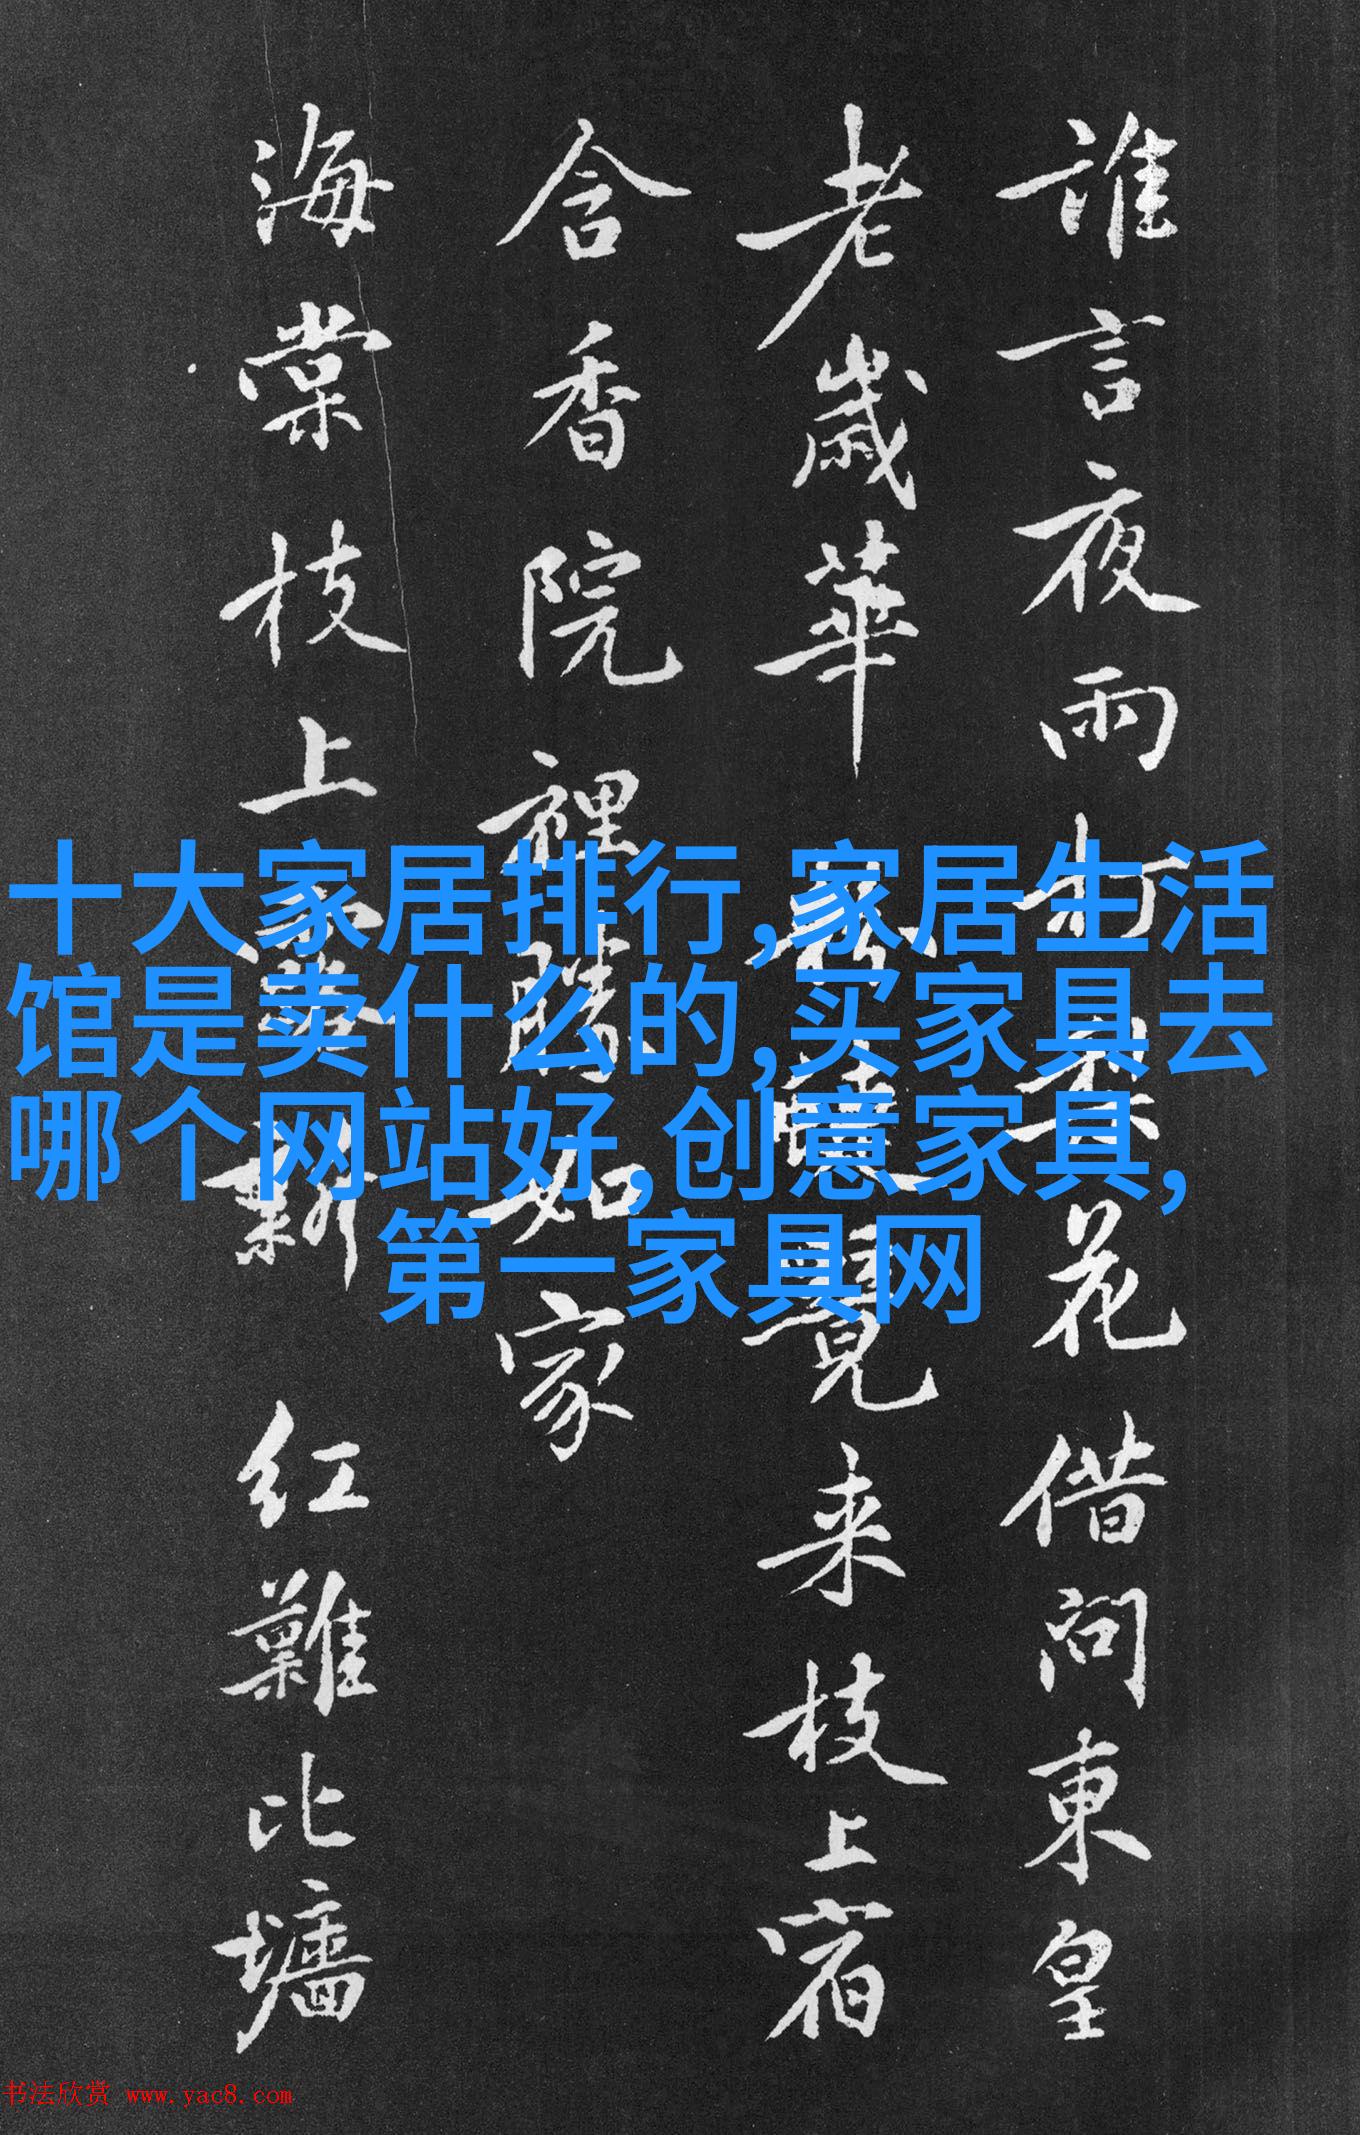 誰言夜雨打梨花借問東皇
老歲華覺来枝上宿
含香院裡勝如家
海棠枝上新红難比墻
十大家居排行,家居生活
馆是卖什么的,买家具去
哪个网站好,创意家具,
第一家具网
书法欣赏 www.yac8.com